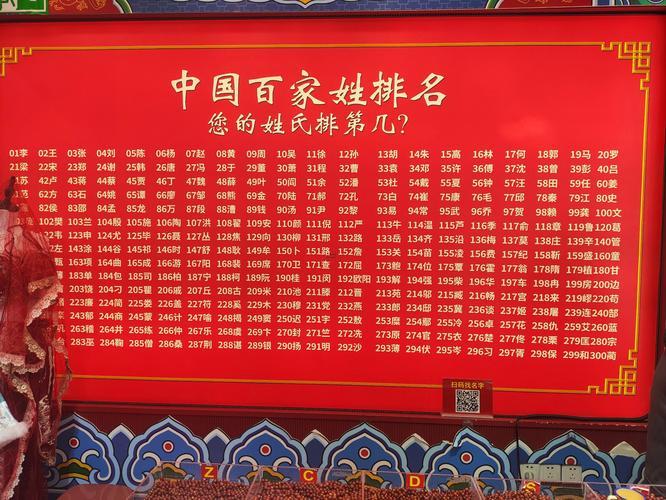 中国百家姓排名
您的姓氏排第几?
01李 02王 03张 04刘 05陈 06杨 07赵 08黄 09周 10吴 11徐 12孙 13胡 14朱 15高 16林 17何 18郭 19马 20罗
21梁 22宋 23郑 24谢 25韩 26唐 27冯 28于 29董 30萧 31程 32曹 33袁 34邓 35许 36傅 37沈 38曾 39彭 40吕
苏 42卢 43蒋 44蔡 45贾 46丁 47魏 48薛 49叶 50阎 51余 52潘 53杜 54戴 55夏 56钟 57汪 58田 59任 60姜
范 62方 63石 64姚 65谭 66廖 67邹 68熊 69金 70陆 71郝 72孔 73白 74崔 75康 76毛 77邱 78秦 79江 80史
82侯 83邵 84孟 85龙 86万 87段 88漕 89钱 90汤 91尹 92黎 93易 94常 95武 96乔 97贺 98赖 99龚 100文
102樊 103兰 104殷 105施 106陶 107洪 108翟 109安 110颜 111倪 112严 113牛 114温 115芦 116季 117俞 118章 119鲁 120葛
韦 123申 124尤 125毕 126聂 127丛 128焦 129向 130柳 131邢 132路 133岳 134齐 135沿 136梅 137莫 138庄 139辛 140管
左 143涂 144谷 145祁 146时 147舒 148耿 149牟 150卜 151路 152詹 153关 154苗 155凌 156费 157纪 158靳 159盛 160童
甄 163项 164曲 165成 166游 167阳 168裴 169席 170卫 171查 172屈 173鲍 174位 175覃 176霍 177翁 178隋 179植 180甘
183单 184包 185司 186柏 187宁 188柯 189阮 190桂 191闵 192欧阳 193解 194强 195柴 196华 197车 198冉 199房 200边
203饶 204刁 205瞿 206戚 207丘 208古 209米 210池 211滕 212晋 213苑 214邬 215臧 216畅 217宫 218来 219嵺 220苟
223廉 224简 225娄 226盖 227符 228奚 229木 230穆 231党 232燕 233郎 234邸 235冀 236谈 237姬 238屠 239连 240郜
243郁 244商 245蒙 246计 247喻 248揭 249窦 250迟 251宇 252敖 253糜 254鄢 255冷 256卓 257花 258仇 259艾 260蓝
263稽 264井 265练 266仲 267乐 268虞 269卞 270封 271竺 272冼 273原 274官 275衣 276楚 277佟 278栗 279匡 280宗
283巫 284鞠 285僧 286桑 287荆 288谌 289银 290扬 291明 292沙 293薄 294伏 295岑 296习 297胥 298保 299和 300蔺
扫码找名字
Z C D S